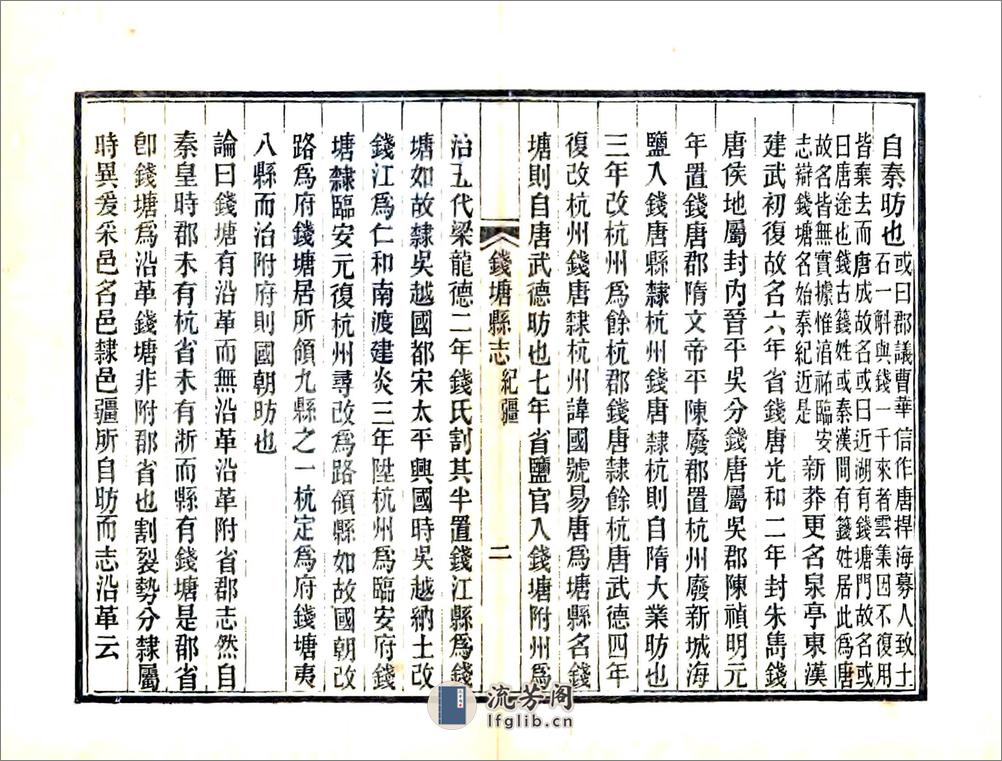 自秦昉也或曰郡議曹華信作唐捍海募人致土
石一斛與錢一千來者雲集因不復用
皆棄去而唐成故名或曰近湖有錢塘門故名或
曰唐途也錢古籛姓或秦漢間有籛姓居此爲唐
故名皆無實據惟淳祐臨安
志辯錢塘名始秦紀近是
新莽更名泉亭東漢
建武初復故名六年省錢唐光和二年封朱雋錢
唐侯地屬封內晉平吳分錢唐屬吳郡陳禎明元
年置錢唐郡隋文帝平陳廢郡置杭州廢新城海
鹽入錢唐縣隸杭州錢唐隸杭則自隋大業昉也
三年改杭州爲餘杭郡錢唐隸餘杭唐武德四年
復改杭州錢唐隸杭州諱國號易唐爲塘縣名錢
塘則自唐武德昉也七年省鹽官入錢塘附州爲
錢塘縣志 紀疆 二
治五代梁龍德二年錢氏割其半置錢江縣爲錢
塘如故隸吳越國都宋太平興國時吳越納土改
錢江爲仁和南渡建炎三年陞杭州爲臨安府錢
塘隸臨安元復杭州尋改爲路領縣如故國朝改
路爲府錢塘居所領九縣之一杭定爲府錢塘夷
八縣而治附府則國朝昉也
論曰錢塘有沿革而無沿革沿革附省郡志然自
秦皇時郡未有杭省未有浙而縣有錢塘是郡省
卽錢塘爲沿革錢塘非附郡省也割裂勢分隸屬
時異爰采邑名邑隸邑疆所自昉而志沿革云
流芳阁
lfglib.cn